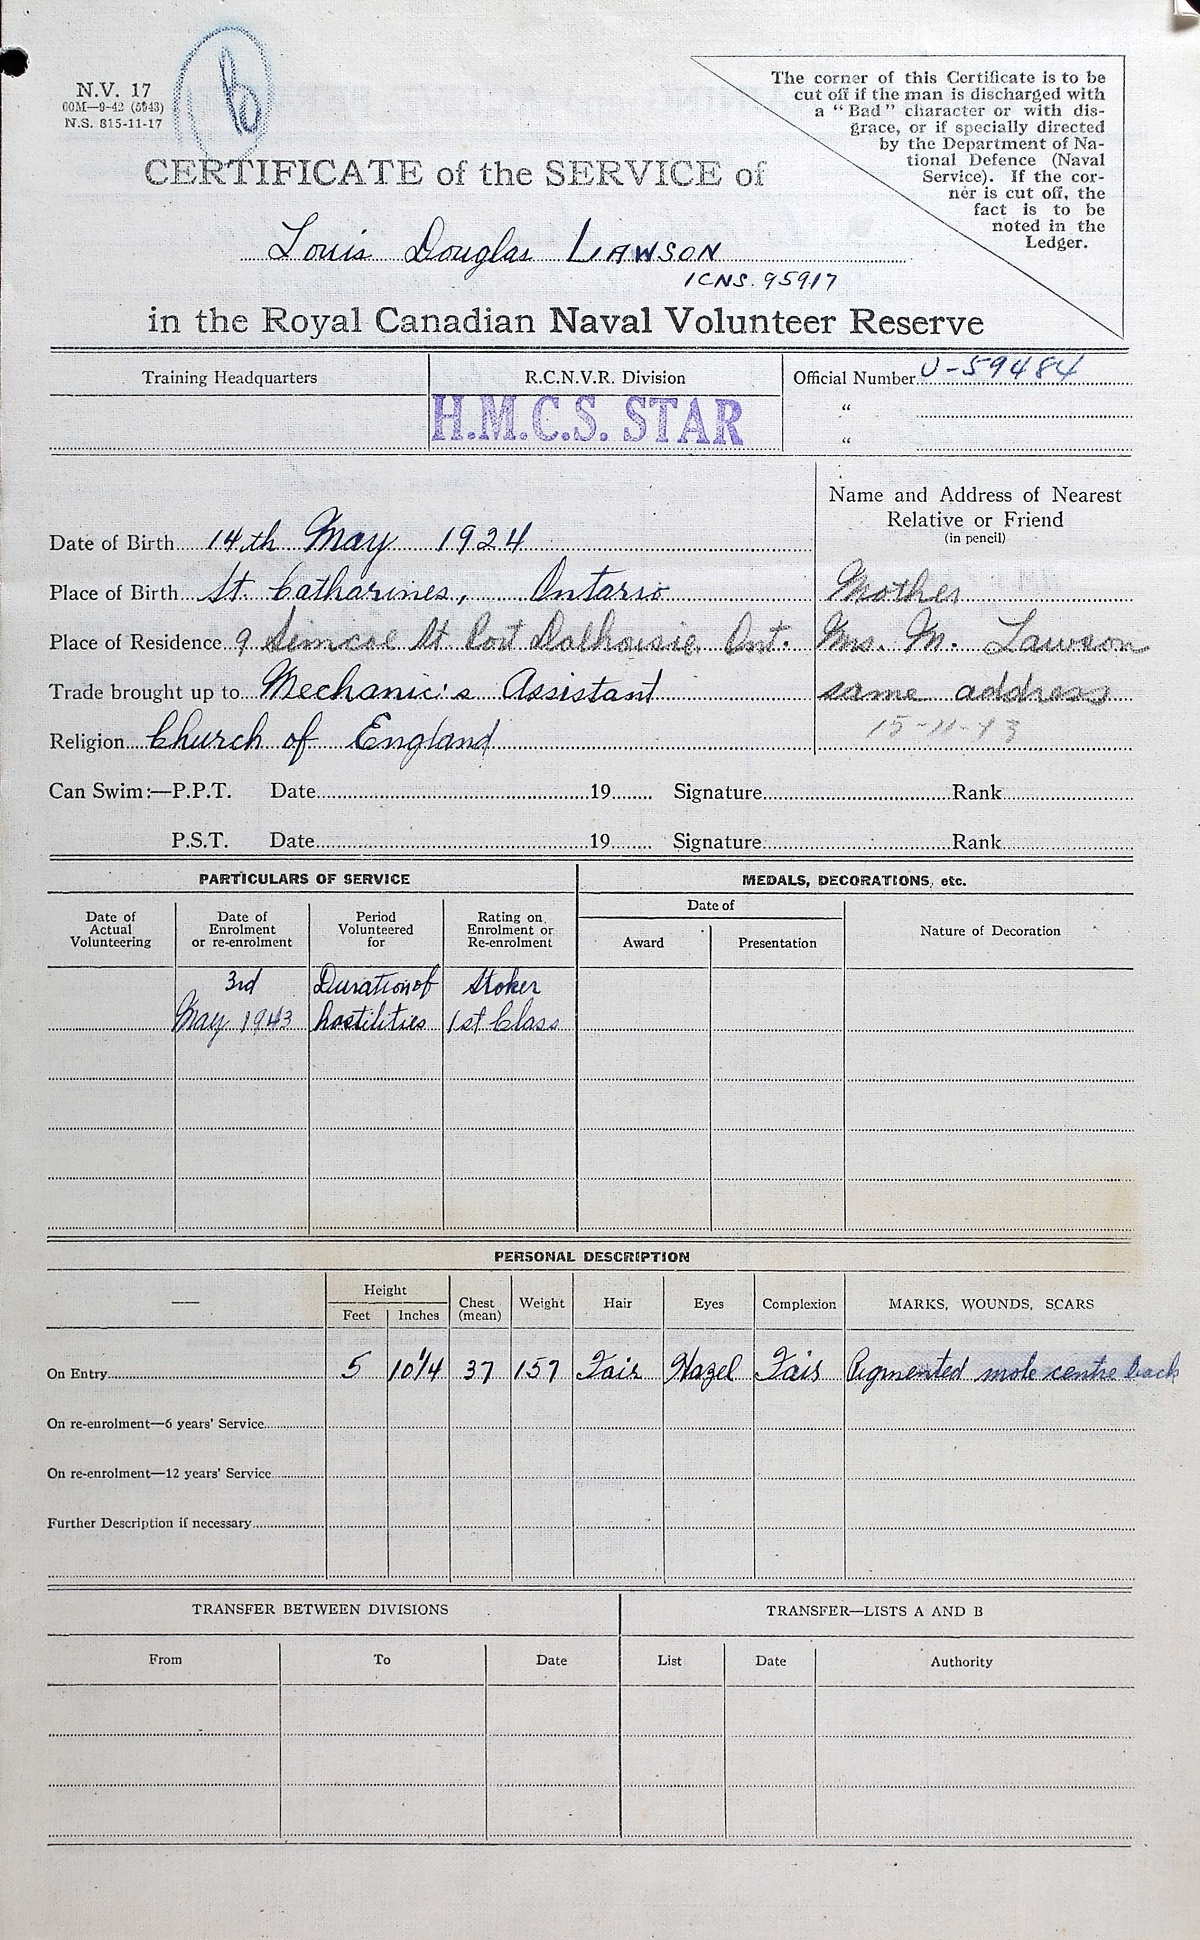 N.V. 17
60M—9-42 (5943)
N.S. 815-11-17
The corner of this Certificate is to be
cut off if the man is discharged with
a "Bad" character or with dis-
grace, or if specially directed
by the Department of Na-
tional Defence (Naval
Service). If the cor-
ner is cut off, the
fact is to be
noted in the
Ledger.
CERTIFICATE of the SERVICE of
Louis Douglas LAWSON
ICNS. 95917
in the Royal Canadian Naval Volunteer Reserve
Training Headquarters
R.C.N.V.R. Division
H.M.C.S. STAR
Official Number V-59484
"
"
Name and Address of Nearest
Relative or Friend
(in pencil)
Date of Birth 14th May 1924
Place of Birth St. Catharines, Ontario
Mother
Place of Residence 9 Simcoe St Port Dalhousie, Ont.
Mrs. M. Lawson
Trade brought up to Mechanic's Assistant
same address
15-11-43
Religion Church of England
Can Swim:—P.P.T. Date 19 Signature Rank
P.S.T. Date 19 Signature Rank
PARTICULARS OF SERVICE
MEDALS, DECORATIONS, etc.
Date of
Actual
Volunteering
Date of
Enrolment
or re-enrolment
Period
Volunteered
for
Rating on
Enrolment or
Re-enrolment
Date of
Award
Presentation
Nature of Decoration
3rd
May 1943
Duration of
hostilities
Stoker
1st Class
PERSONAL DESCRIPTION
—
Height
Feet
Inches
Chest
(mean)
Weight
Hair
Eyes
Complexion
MARKS, WOUNDS, SCARS
On Entry 5 10 1/4 37 157 Fair Hazel Fair Pigmented mole centre back
On re-enrolment—6 years' Service
On re-enrolment—12 years' Service
Further Description if necessary
TRANSFER BETWEEN DIVISIONS
TRANSFER—LISTS A AND B
From
To
Date
List
Date
Authority